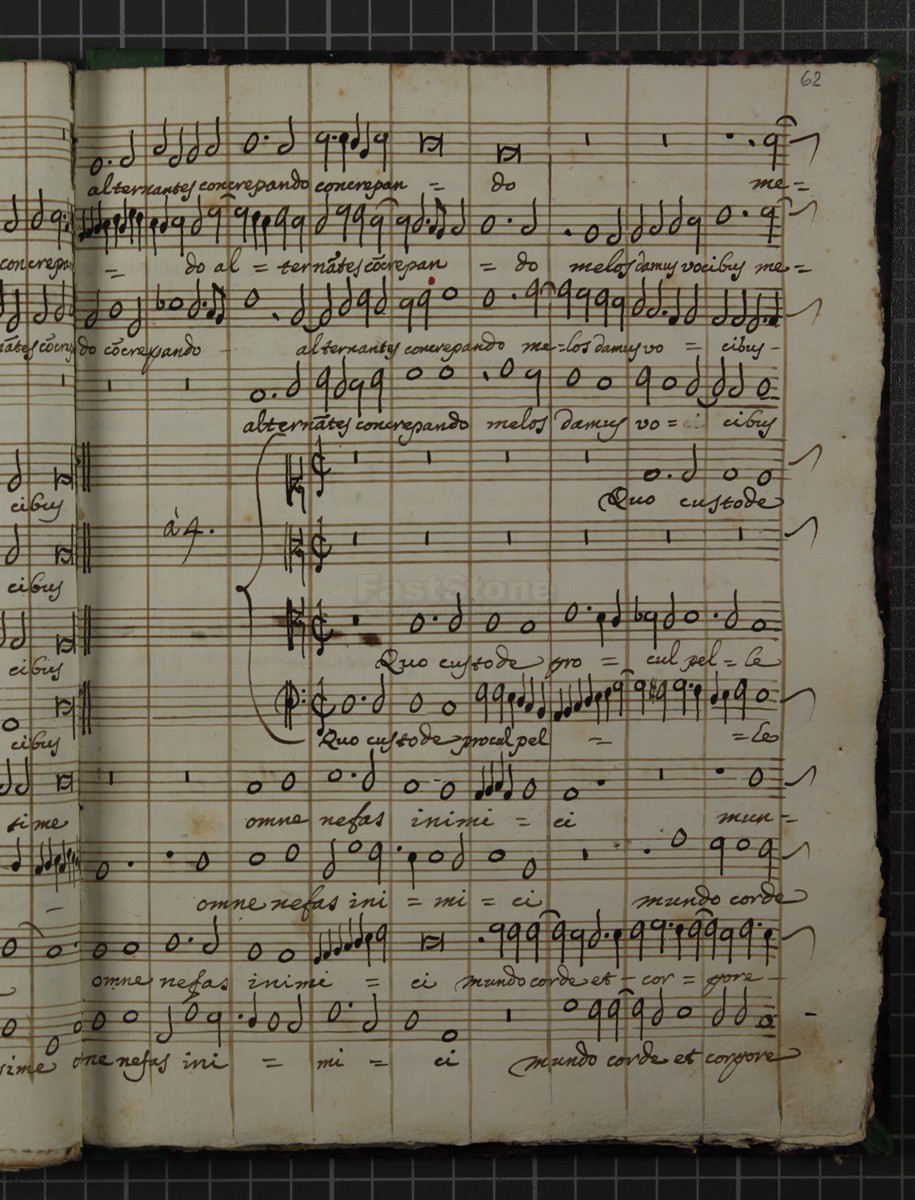 62
alternantes concrepando concrepan = do me=
concrepan = do al = ternātes cōcrepan = do melos damus vocibus me=
nātes cōcrep do cōcrepando alternantes concrepando me=los damus vo = cibus-
alternātes concrepando melos damus vo = cibus
cibus Quo custode
a 4.
cibus
FastStone
cibus Quo custode pro = cul pel = le
cibus Quo custode procul pel = = le
omne nefas inimi = ci mun-
sime
omne nefas ini = mi = ci mundo corde
omne nefas inimi = ci mundo corde et - cor = pore -
sime one nefas ini = mi = ci mundo corde et corpore